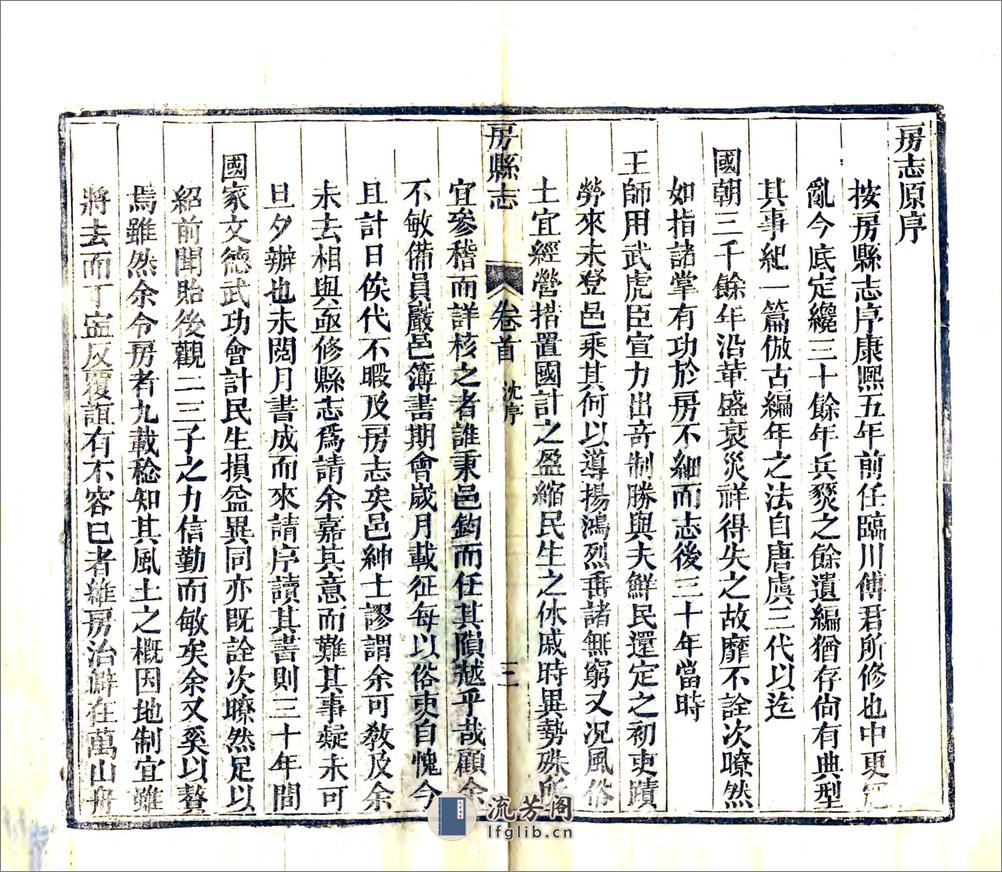 房志原序
按房縣志序康熙五年前任臨川傅君所修也中更寇
亂今底定纔三十餘年兵燹之餘遺編猶存尙有典型
其事紀一篇倣古編年之法自唐虞三代以迄
國朝三千餘年沿革盛衰災祥得失之故靡不詮次暸然
如指諸掌有功於房不細而志後三十年當時
王師用武虎臣宣力出竒制勝與夫鮮民還定之初吏蹟
勞來未登邑乘其何以導揚鴻烈垂諸無窮又况風俗
土宜經營措置國計之盈縮民生之休戚時異勢殊所
房縣志
卷首
沈序
三
宜參稽而詳核之者誰秉邑鈞而任其隕越乎哉顧余
不敏備員嚴邑簿書期會歲月載征每以俗吏自愧今
且計日俟代不暇及房志矣邑紳士謬謂余可敎及余
未去相與亟修縣志爲請余嘉其意而難其事疑未可
旦夕辦也未閱月書成而來請序讀其書則三十年間
國家文德武功會計民生損益異同亦旣詮次暸然足以
紹前聞貽後觀二三子之力信勤而敏矣余又奚以贅
焉雖然余令房者九載稔知其風土之槪因地制宜雖
將去而丁寍反覆誼有不容已者雖房治僻在萬山舟
流芳阁
lfglib.cn